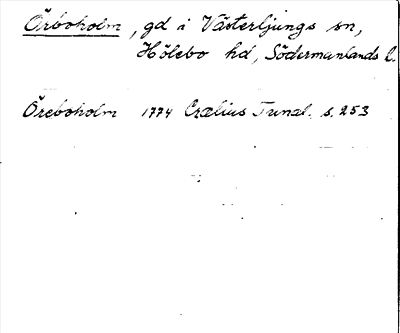 Örboholm, gd i Västerljungs sn,
Hölebo hd, Södermanlands l.
Öreboholm 1774 Crælius Tunal. s. 253